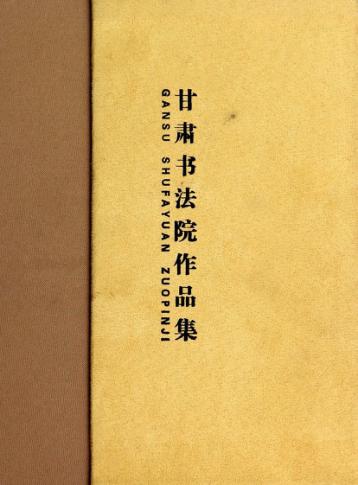 甘肃书法院作品集
GANSU SHUFAYUAN ZUOPINJI